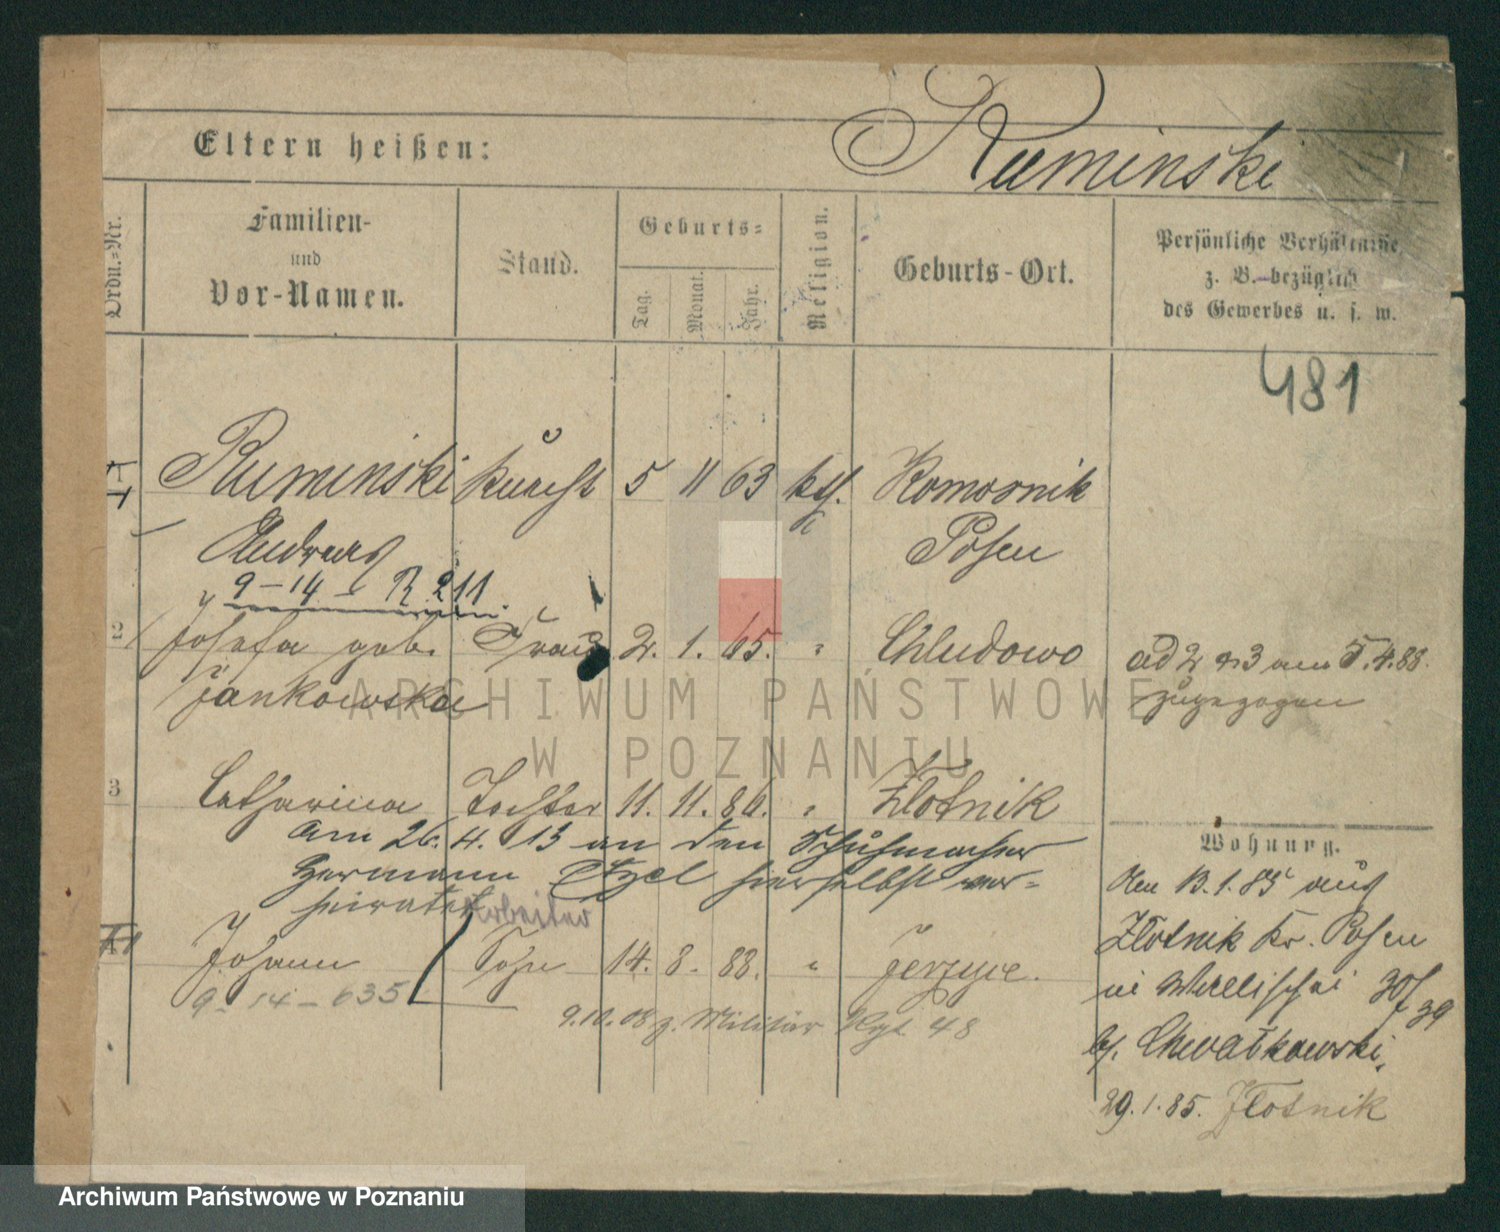 Ruminski
Eltern heißen:
Ordn.-Nr.
Familien-
und
Vor-Namen.
Stand.
Geburts-
Tag.
Monat.
Jahr.
Religion.
Geburts-Ort.
Persönliche Verhältnisse,
z. B. bezüglich
des Gewerbes u. s. w.
481
Ruminski Knecht 5 11 63 kth. Komornik
Andreas Posen
9-14- R 211
2 Josefa geb. Frau 2. 1. 65. " Chludowo
Jankowska
ad 2 3 am 5.4.88.
zugezogen
3 Catharina Tochter 11. 11. 86. " Zlotnik
Am 26. 4. 13 an den Schuhmacher
Hermann hierselbst ver-
heiratet
Arbeiter
Johann Sohn 14. 8. 88. "
9-14-635
9.10.08 z. Militär Rgt. 48
Wohnung.
Den 13.1.85 aus
Zlotnik Kr. Posen
b/. Chwalkowski,
29.1.85. Zlotnik
ARCHIWUM PAŃSTWOWE
W POZNANIU
Archiwum Państwowe w Poznaniu